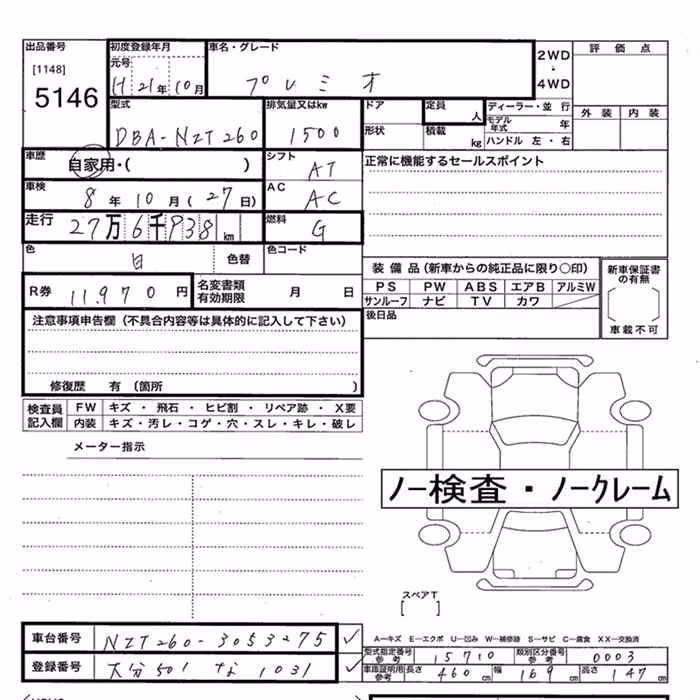 出品番号 初度登録年月 車名・グレード 2WD 評価点
[1148] 元号 ・
5146 H 21年 10月 プレミオ 4WD
型式 排気量又はkw ドア 定員 人 ディーラー・並 行 外 装 内 装
DBA-NZT260 1500 形状 積載 kg モデル年式 年
ハンドル 左・右
車歴 自家用・( ) シフト AT 正常に機能するセールスポイント
車検 8年 10月 (27日) AC AC
走行 27万6千938km 燃料 G
色 白 色替 色コード
装備品(新車からの純正品に限り○印) 新車保証書の有無
R券 11,970円 名変書類有効期限 月 日 PS PW ABS エアB アルミW
サンルーフ ナビ TV カワ 車載不可
注意事項申告欄(不具合内容等は具体的に記入して下さい) 後日品
修復歴 有 (箇所 )
検査員記入欄 FW キズ ・ 飛石 ・ ヒビ割 ・ リペア跡 ・ X要
内装 キズ・汚レ・コゲ・穴・スレ・キレ・破レ
メーター指示
ノー検査・ノークレーム
スペアT
[ ]
車台番号 NZT260-3053275 ✓ A-キズ E-エクボ U-凹み W-補修跡 S-サビ C-腐食 XX-交換済
型式指定番号 参考 15710 類別区分番号 参考 0003
登録番号 大分 501 な 1031 ✓ 車庫証明用 参考 長さ 460cm 幅 169cm 高さ 147cm